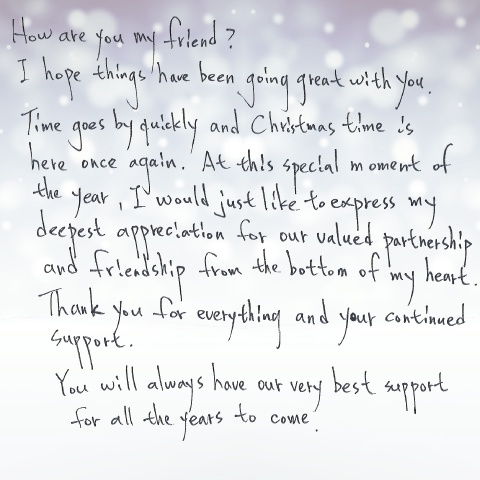 How are you my friend ?
I hope things have been going great with you.
Time goes by quickly and Christmas time is
here once again. At this special moment of
the year, I would just like to express my
deepest appreciation for our valued partnership
and friendship from the bottom of my heart.
Thank you for everything and your continued
support.
You will always have our very best support
for all the years to come.